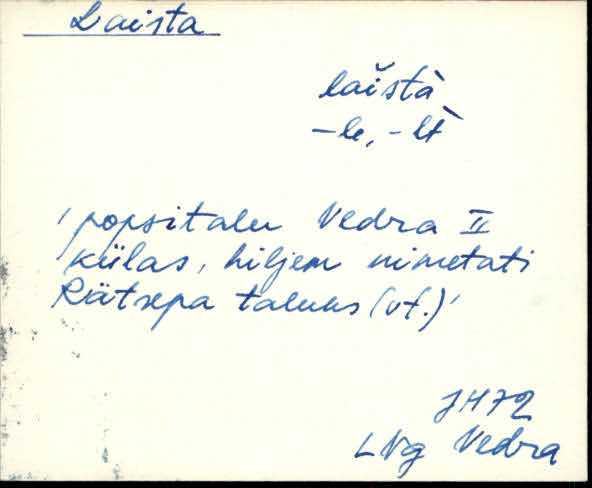 Laista
laĭstà
-le, -lt̀
'popsitalu Vedra II
külas, hiljem nimetati
Rätsepa taluks (vt.)'
JH72
LNg Vedra